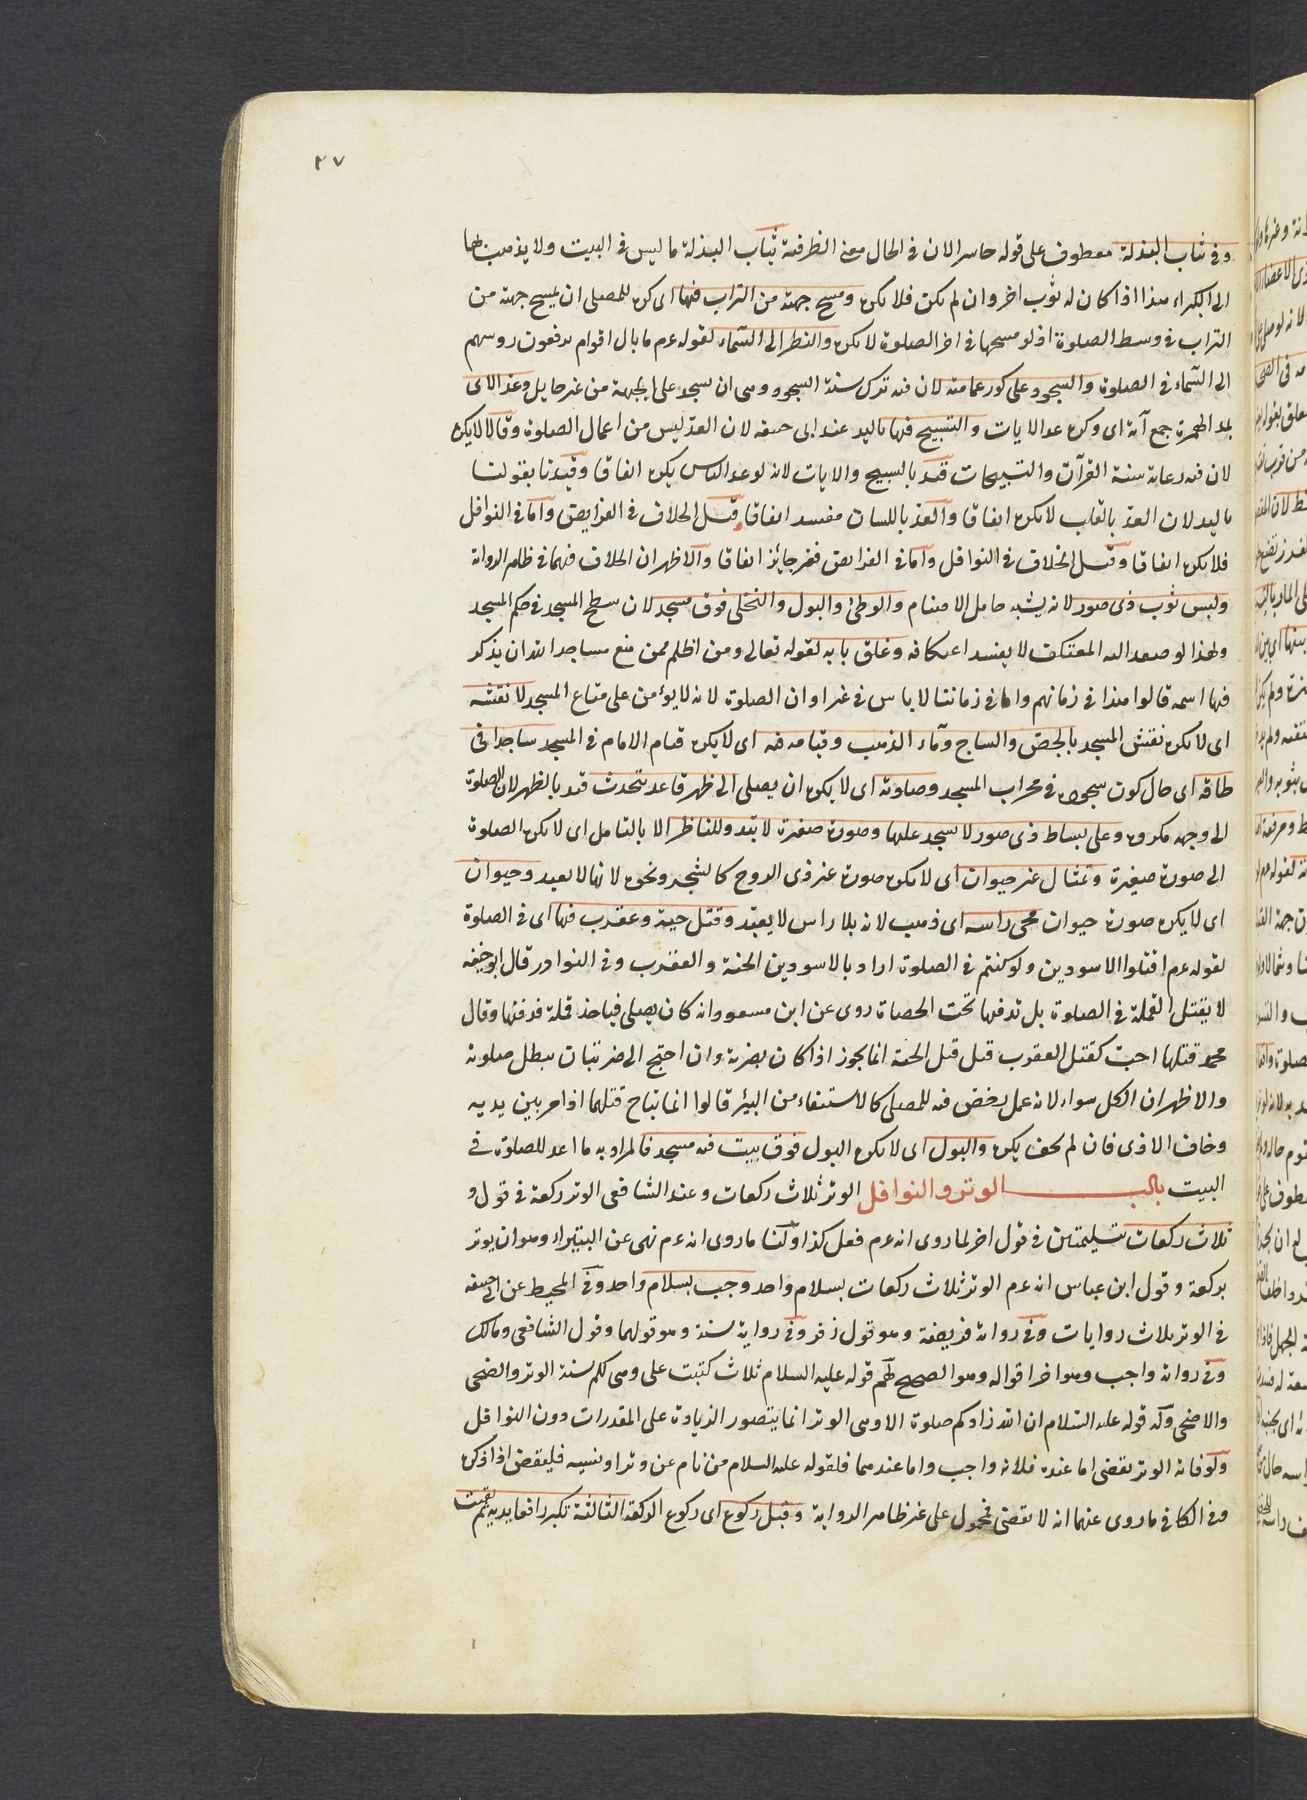 ٢٧
وفى ثياب البذلة معطوف على قوله حاسرا لان فى الحال معنى الظرفية ثياب البذلة ما ليس فى البيت ولا يذهب بها
الى الكبراء هذا اذا كان له ثوب اخر وان لم يكن فلا يكره ومسح جبهته من التراب فيها اى كره للمصلى ان يمسح جبهته من
التراب فى وسط الصلوة اذ لو مسحها فى اخر الصلوة لا يكره والنظر الى السماء لقوله عم ما بال اقوام يرفعون روسهم
الى السماء فى الصلوة والسجود على كور عمامته لان فيه ترك سنة السجود وهى ان يسجد على الجبهة من غير حايل وعد الاى
بمد الهمزة جمع آية اى وكره عد الايات والتسبيح فيها باليد عند ابى حنيفه لان العد ليس من اعمال الصلوة وقالا لا يكره
لان فيه رعاية سنة القرآن والتسبيحات قيد بالتسبيح والايات لانه لو عد الناس يكره اتفاقا وقيدنا بقولنا
باليد لان العد بالقلب لا يكره اتفاقا والعد باللسان مفسد اتفاقا قيل الخلاف فى الفرايض واما فى النوافل
فلا يكره اتفاقا وقيل الخلاف فى النوافل واما فى الفرايض فغير جائز اتفاقا والاظهر ان الخلاف فيهما فى ظاهر الرواية
ولبس ثوب ذى صور لانه يشبه حامل الاصنام والوطئ والبول والتخلى فوق مسجد لان سطح المسجد فى حكم المسجد
ولهذا لو صعد اليه المعتكف لا يفسد اعتكافه وغلق بابه لقوله تعالى ومن اظلم ممن منع مساجد الله ان يذكر
فيها اسمه قالوا هذا فى زمانهم واما فى زماننا لا باس فى غير اوان الصلوة لانه لا يؤمن على متاع المسجد لا نقشه
اى لا يكره نقش المسجد بالجص والساج وماء الذهب وقيامه فيه اى لا يكره قيام الامام فى المسجد ساجدا فى
طاقه اى حال كون سجوده فى محراب المسجد وصلوته اى لا يكره ان يصلى الى ظهر قاعد يتحدث قيد بالظهر لان الصلوة
الى وجهه مكروه وعلى بساط ذى صور لا يسجد عليها وصورة صغيرة لا تبدو للناظر الا بالتامل اى لا يكره الصلوة
الى صورة صغيرة وتمثال غير حيوان اى لا يكره صورة غير ذى الروح كالشجر ونحوه لانها لا تعبد وحيوان
اى لا يكره صورة حيوان محى راسه اى ذهب لانه بلا راس لا يعبد وقتل حية وعقرب فيها اى فى الصلوة
لقوله عم اقتلوا الاسودين ولو كنتم فى الصلوة اراد بالاسودين الحية والعقرب وفى النوادر قال ابو حنيفه
لا يقتل القملة فى الصلوة بل يدفنها تحت الحصاة روى عن ابن مسعود انه كان يصلى فياخذ قملة فدفنها وقال
محمد قتلها احب كقتل العقرب قيل قتل الحية انما يجوز اذا كان بضربة وان احتج الى ضربتان يبطل صلوته
والاظهر ان الكل سواء لانه عمل رخص فيه للمصلى كالاستقاء من البئر قالوا انما يباح قتلهما اذا مر بين يديه
وخاف الاذى فان لم يخف يكره والبول اى لا يكره البول فوق بيت فيه مسجد فالمراد به ما اعد للصلوة فى
البيت باب الوتر والنوافل الوتر ثلاث ركعات وعند الشافعى الوتر ركعة فى قول و
ثلاث ركعات بتسليمتين فى قول اخر لما روى انه عم فعل كذا ولنا ما روى انه عم نهى عن البتيراء وهو ان يوتر
بركعة وقول ابن عباس انه عم الوتر ثلاث ركعات بسلام واحد وجب بسلام واحد وفى المحيط عن ابى حنيفه
فى الوتر ثلاث روايات وفى رواية فريضة وهو قول زفر وفى رواية سنة وهو قولهما وقول الشافعى ومالك
وفى رواية واجب وهو اخر اقواله وهو الصحيح لهم قوله عليه السلام ثلاث كتبت على وهى لكم سنة الوتر والضحى
والاضحى وله قوله عليه السلام ان الله زادكم صلوة الا وهى الوتر انما يتصور الزيادة على المقدرات دون النوافل
ولو فاته الوتر يقضى اما عنده فلانه واجب واما عندهما فلقوله عليه السلام من نام عن وتر او نسيه فليقض اذا ذكره
وفى الكافى ما روى عنهما انه لا يقضى فمحمول على غير ظاهر الرواية وقبل ركوع اى ركوع الركعة الثالثة تكبر رافعا يديه ثم يقنت